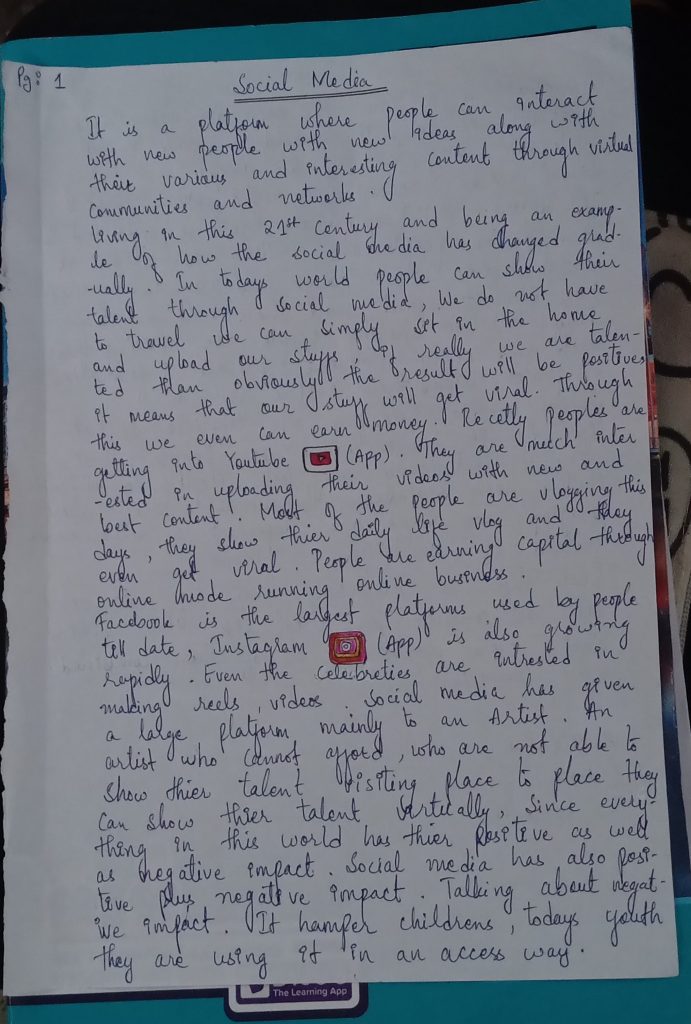 Pg: 1
Social Media
It is a platform where people can interact
with new people with new ideas along with
their various and interesting content through virtual
communities and networks.
living in this 21st century and being an examp-
le of how the social media has changed grad-
-ually. In todays world people can show their
talent through social media, We do not have
to travel we can simply sit in the home
and upload our stuffs, if really we are talen-
ted than obviously the result will be positives
it means that our stuff will get viral. Through
this we even can earn money. Recetly peoples are
getting into Youtube (App). They are much inter
-ested in uploading their videos with new and
best content. Most of the people are vlogging this
days, they show thier daily life vlog and they
even get viral. People are earning capital through
online mode running online business.
Facebook is the largest platforms used by people
till date, Instagram (App) is also growing
rapidly. Even the celebreties are intrested in
making reels, videos. Social media has given
a large platform mainly to an Artist. An
artist who cannot afford, who are not able to
show thier talent visiting place to place they
can show thier talent vertically, since every-
thing in this world has thier positive as well
as negative impact. Social media has also posi-
tive plus negative impact. Talking about negat-
ive impact. It hamper childrens, todays youth
they are using it in an access way.
The Learning App